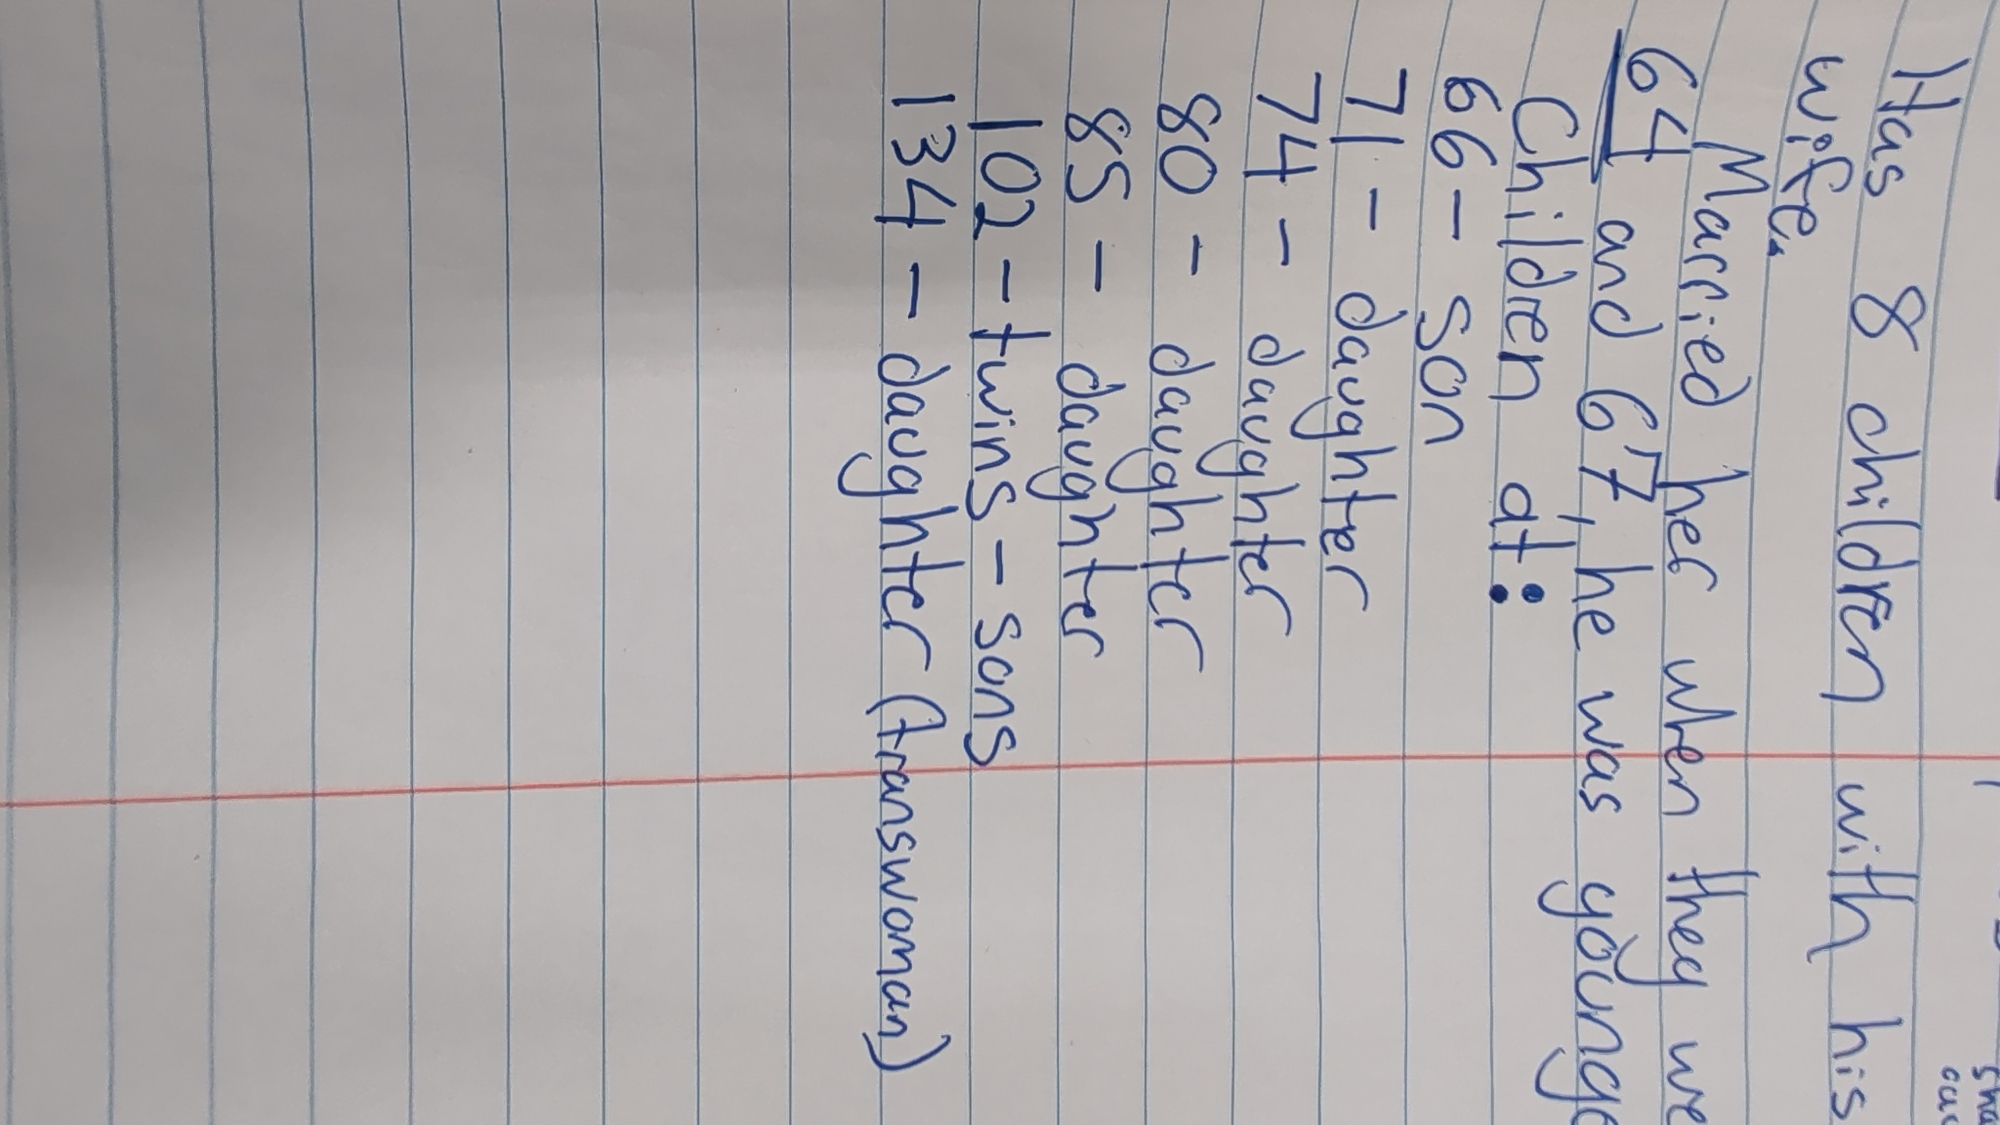 Has 8 children with his
wife.
Married her when they we
64 and 67, he was younge
Children at:
66 - son
71 - daughter
74 - daughter
80 - daughter
85 - daughter
102 - twins - sons
134 - daughter (transwoman)